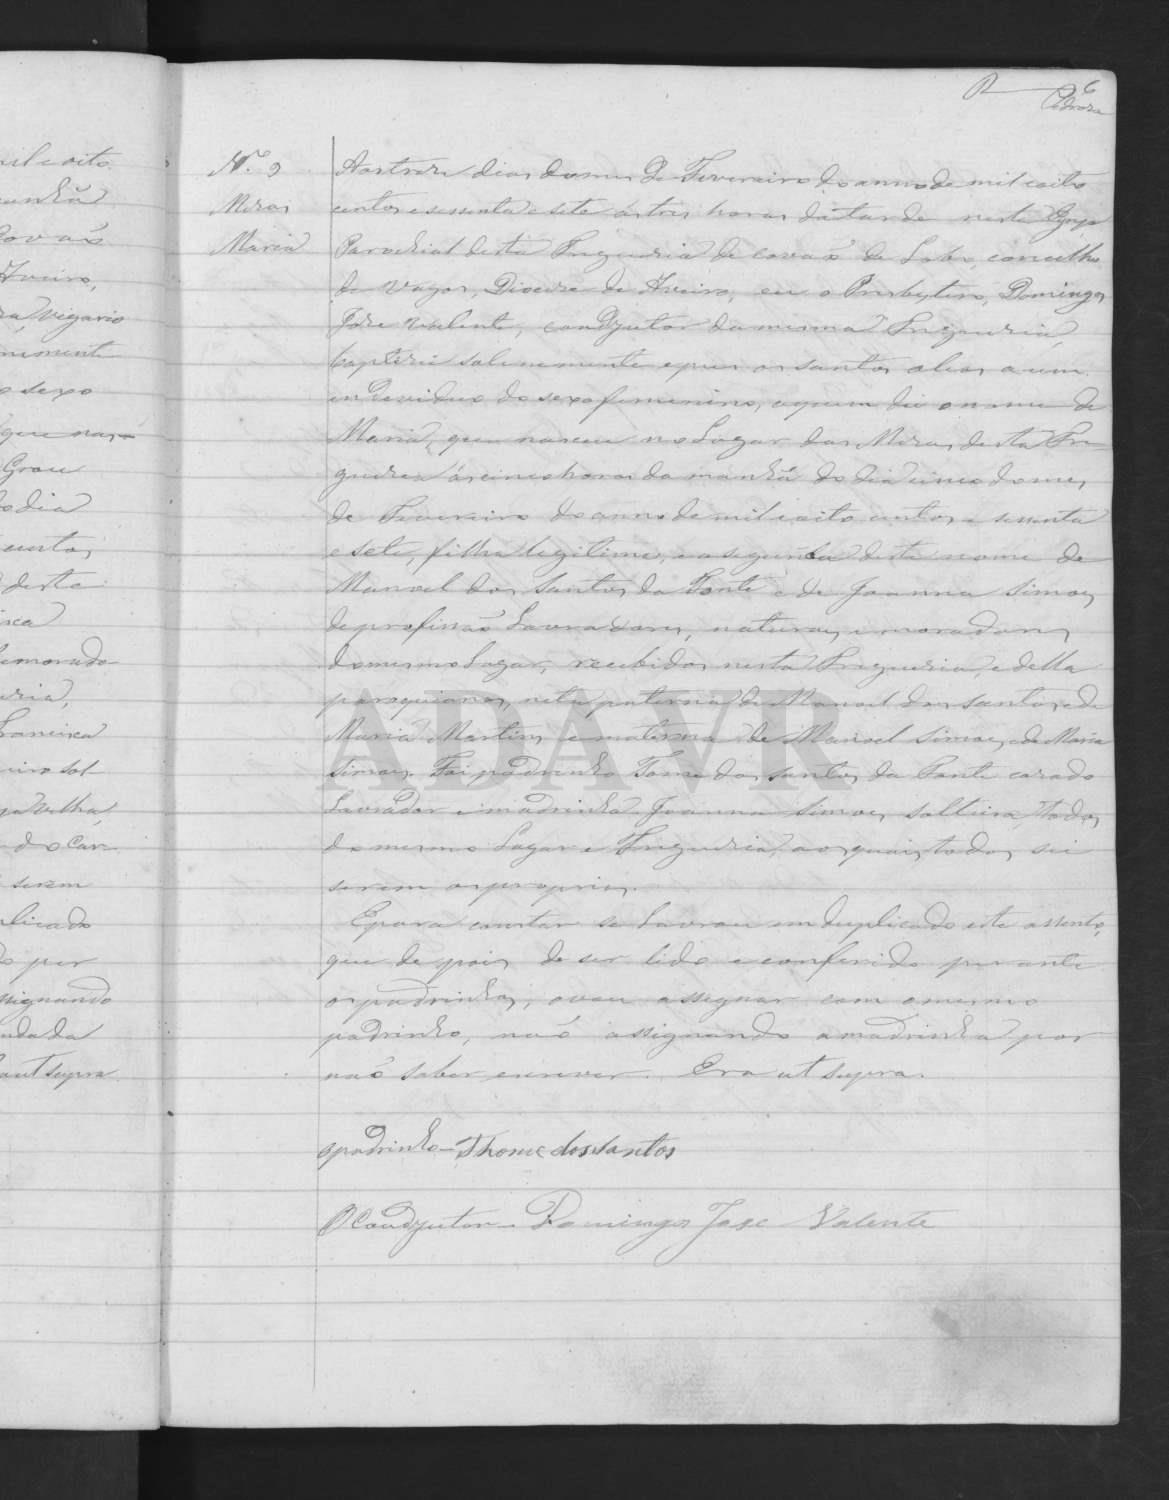 R 6
Pedroza
il e oito
manhã
Covão
Aveiro,
Vigario
nemente
o sexo
que nas-
Grou
do dia
centos
desta
morado
Francisca
Velha,
do Car-
serem
plicado
do per
assignando
ut supra
N.º 9
Miras
Maria
Aos treze dias do mes de Fevereiro do anno de mil e oito
centos e sessenta e sete ás tres horas da tarde nesta Egreja
Parochial desta Freguezia de Covaõ do Lobo, concelho
de Vagos, Diocese de Aveiro, eu o Presbytero, Domingos
Jose Valente, coadjutor da mesma Freguezia,
baptizei solemnemente e puz os santos oleos a um
individuo do sexo femenino, a quem dei o nome de
Maria, que nasceu no Lugar das Miras, desta Fre-
guezia ás cinco horas da manhã do dia cinco do mes
de Fevereiro do anno de mil e oito centos e sessenta
e sete, filha legitima, e a segunda deste nome de
Manoel dos Santos da Fonte e de Joanna Simoes
de profissaõ Lavradores, naturaes e moradores
do mesmo Lugar, recebidos nesta Freguezia, e della
paroquianos, neta paterna de Manoel dos Santos e de
Maria Martins e materna de Manoel Simoes e de Maria
Simoes. Foi padrinho Tome dos Santos da Fonte casado
Lavrador e madrinha Joanna Simoes solteira, todos
do mesmo Lugar e Freguezia, aos quaes todos sei
serem os proprios.
E para constar se Lavrou em duplicado este assento,
que de pois de ser lido e conferido per ante
os padrinhos, o vou assignar com o mesmo
padrinho, naõ assignando a madrinha por
naõ saber escrever. Era ut supra.
O padrinho - Thome dos Santos
O Coadjutor - Domingos Jose Valente
ADAVR